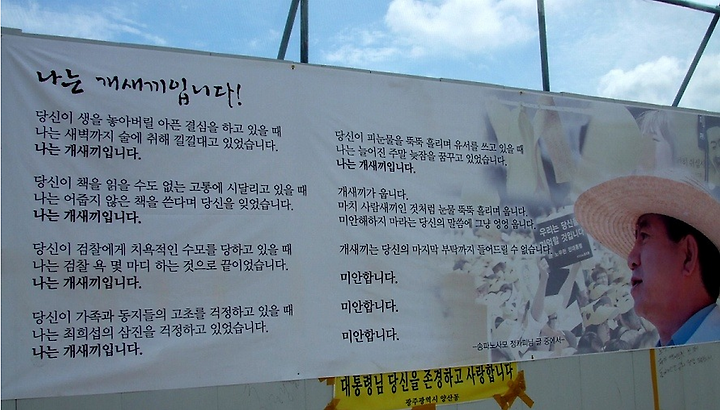 나는 개새끼입니다!
당신이 생을 놓아버릴 아픈 결심을 하고 있을 때
나는 새벽까지 술에 취해 낄낄대고 있었습니다.
나는 개새끼입니다.
당신이 책을 읽을 수도 없는 고통에 시달리고 있을 때
나는 어줍지 않은 책을 쓴다며 당신을 잊었습니다.
나는 개새끼입니다.
당신이 검찰에게 치욕적인 수모를 당하고 있을 때
나는 검찰 욕 몇 마디 하는 것으로 끝이었습니다.
나는 개새끼입니다.
당신이 가족과 동지들의 고초를 걱정하고 있을 때
나는 최희섭의 삼진을 걱정하고 있었습니다.
나는 개새끼입니다.
당신이 피눈물을 뚝뚝 흘리며 유서를 쓰고 있을 때
나는 늘어진 주말 늦잠을 꿈꾸고 있었습니다.
나는 개새끼입니다.
개새끼가 웁니다.
마치 사람새끼인 것처럼 눈물 뚝뚝 흘리며 웁니다.
미안해하지 마라는 당신의 말씀에 그냥 엉엉 웁니다.
개새끼는 당신의 마지막 부탁까지 들어드릴 수 없습니다.
미안합니다.
미안합니다.
미안합니다.
-송파노사모 정카피님 글 중에서-
우리는 당신을
대통령님 당신을 존경하고 사랑합니다
광주광역시 양산동